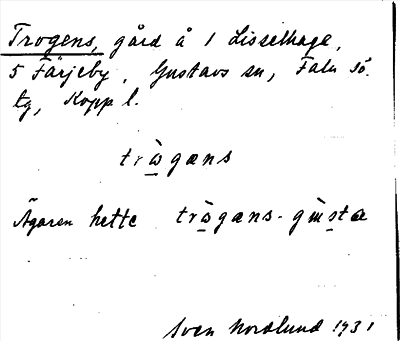 Trogens, gård å 1 Lisselhage,
5 Färjeby, Gustavs sn, Falu sö.
tg, Kopp l.
trògæns
Ägaren hette trògæns-gùsta
Sven Nordlund 1931